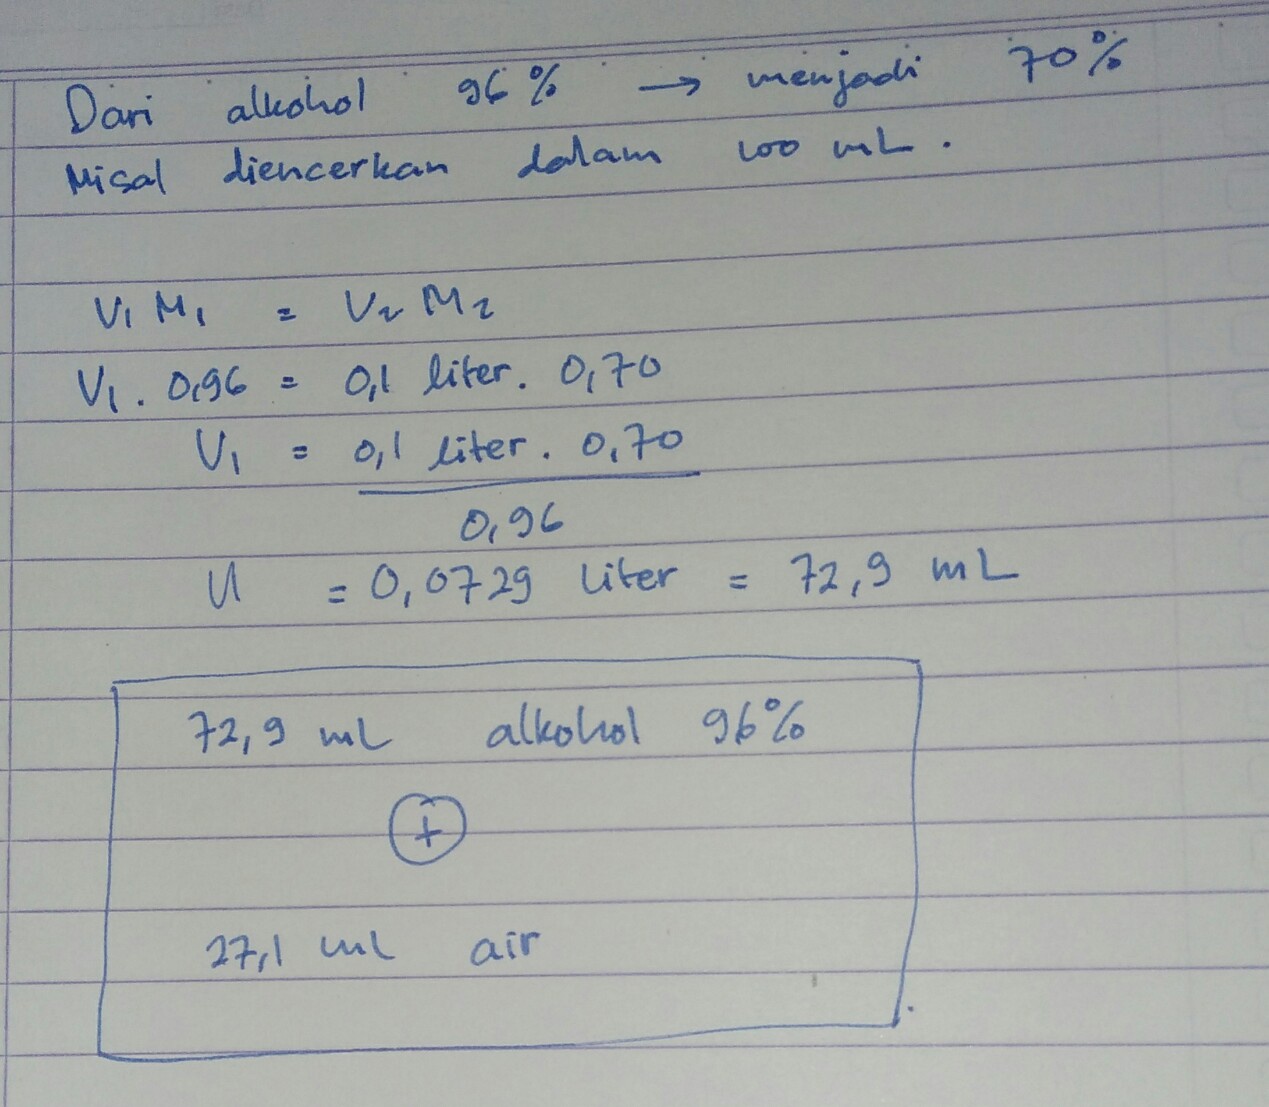 Dari alkohol 96% → menjadi 70%
Misal diencerkan dalam 100 mL.
V1 M1 = V2 M2
V1 . 0,96 = 0,1 liter . 0,70
V1 = 0,1 liter . 0,70
0,96
V1 = 0,0729 liter = 72,9 mL
72,9 mL alkohol 96%
+
27,1 mL air